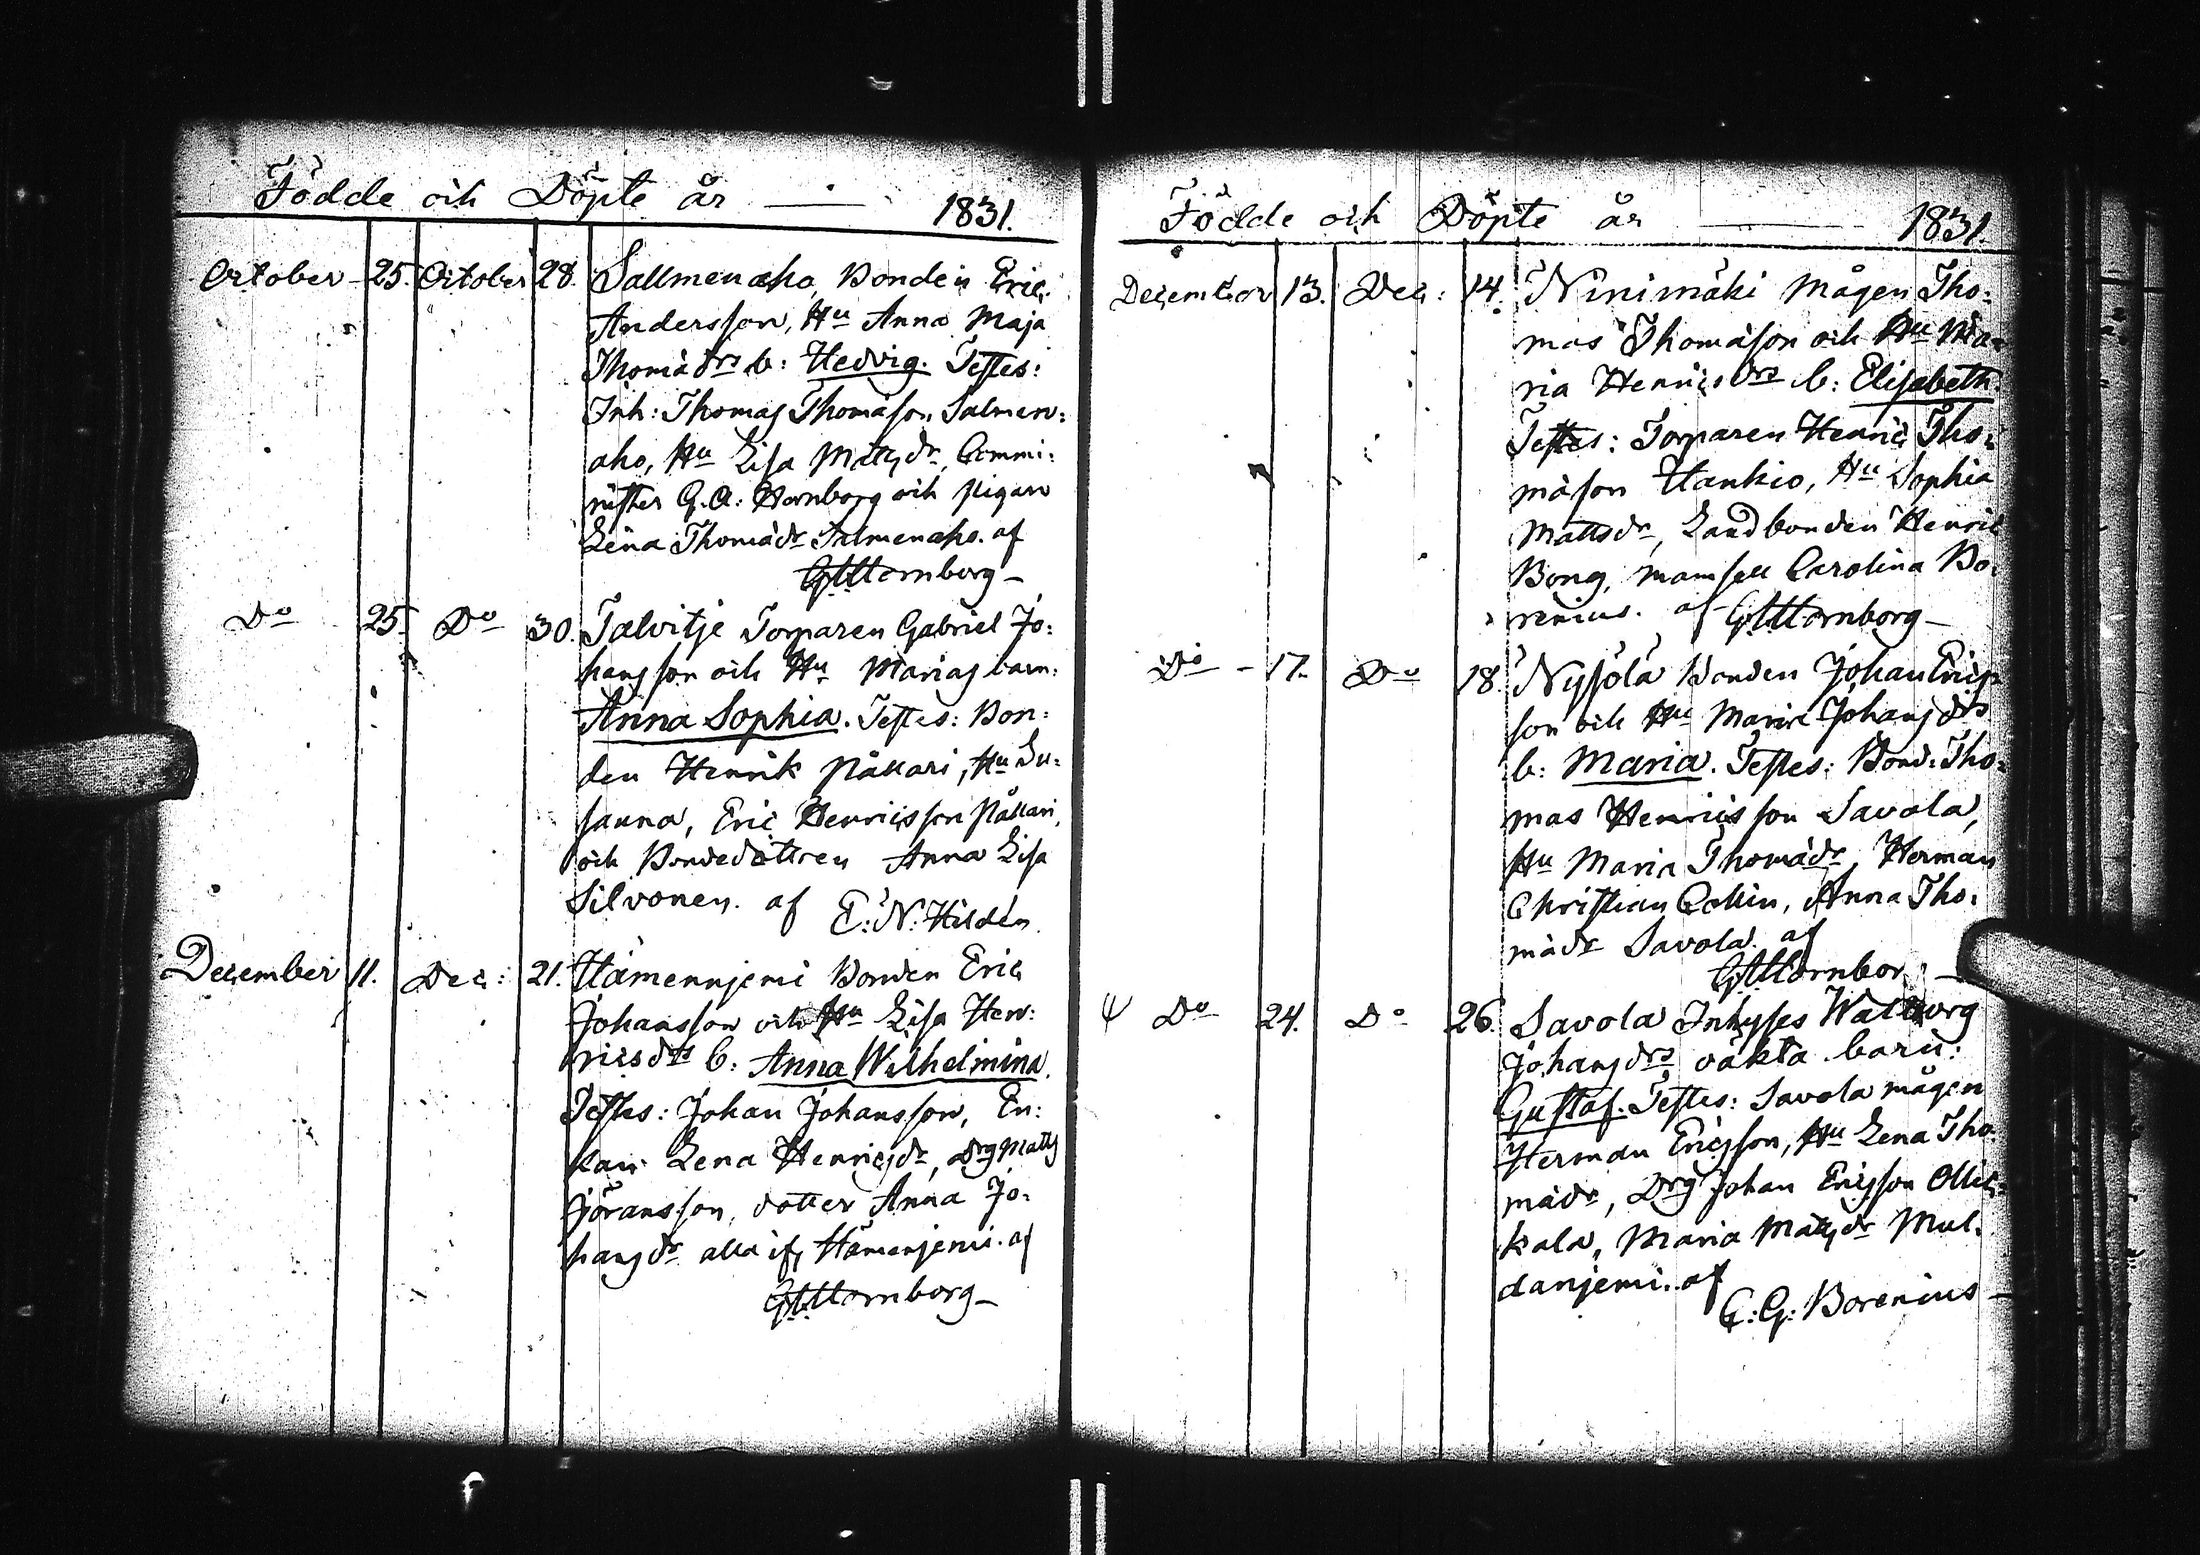 Födde och Döpte år — 1831.
October 25. October 28. Sallmenaho, Bonden Eric
Andersson, Hu Anna Maja
Thomædrs b: Hedvig. Testes:
Inh: Thomas Thomason Salmen:
aho, Hu Lisa Matsdr, Commi:
nister G. A: Hornborg och pigan
Lena Thomædr Salmenaho. af
GAHornborg
Do 25. Do 30. Talvitje Torparen Gabriel Jo:
hansson och Hu Marias barn:
Anna Sophia. Testes: Bon:
den Henrik Påkkari, Hu Su:
sanna, Eric Henricsson Påkkari,
och Bondedottren Anna Lisa
Silvonen. af E: N: Hildén
December 11. Dec: 21. Hämennjemi Bonden Eric
Johansson och Hu Lisa Hen:
ricsdrs b: Anna Wilhelmina.
Testes: Johan Johansson, En:
kan Lena Henricsdr, Drg Matts
Jöransson, dotter Anna Jo:
hansdr alla ifr Hämenjemi. af
GAHornborg
Födde och Döpte år — 1831.
December 13. Dec: 14. Ninimäki Mågen Tho:
mas Thomason och Hu Ma=
ria Henricsdrs b: Elisabeth
Testes: Torparen Henric Tho:
mason Hankio, Hu Sophia
Mattsdr, Landbonden Henric
Bong, Mamsell Carolina Bo:
renius. af GAHornborg
Do 17. Do 18. Nysölä Bonden Johan Erics
son och Hu Maria Johansdrs
b: Maria. Testes: Bond: Tho:
mas Henricsson Savola,
Hu Maria Thomædr, Herman
Christian Collin, Anna Tho:
mædr Savola. af
GAHornborg
Do 24. Do 26. Savola Inhyses Walborg
Johansdrs oäkta barn:
Gustaf. Testes: Savola mågen
Herman Ericsson, Hu Lena Tho:
mædr, Drg Johan Ericsson Ollic=
kala, Maria Matsdr Mul:
danjemi. af
C: G: Borenius